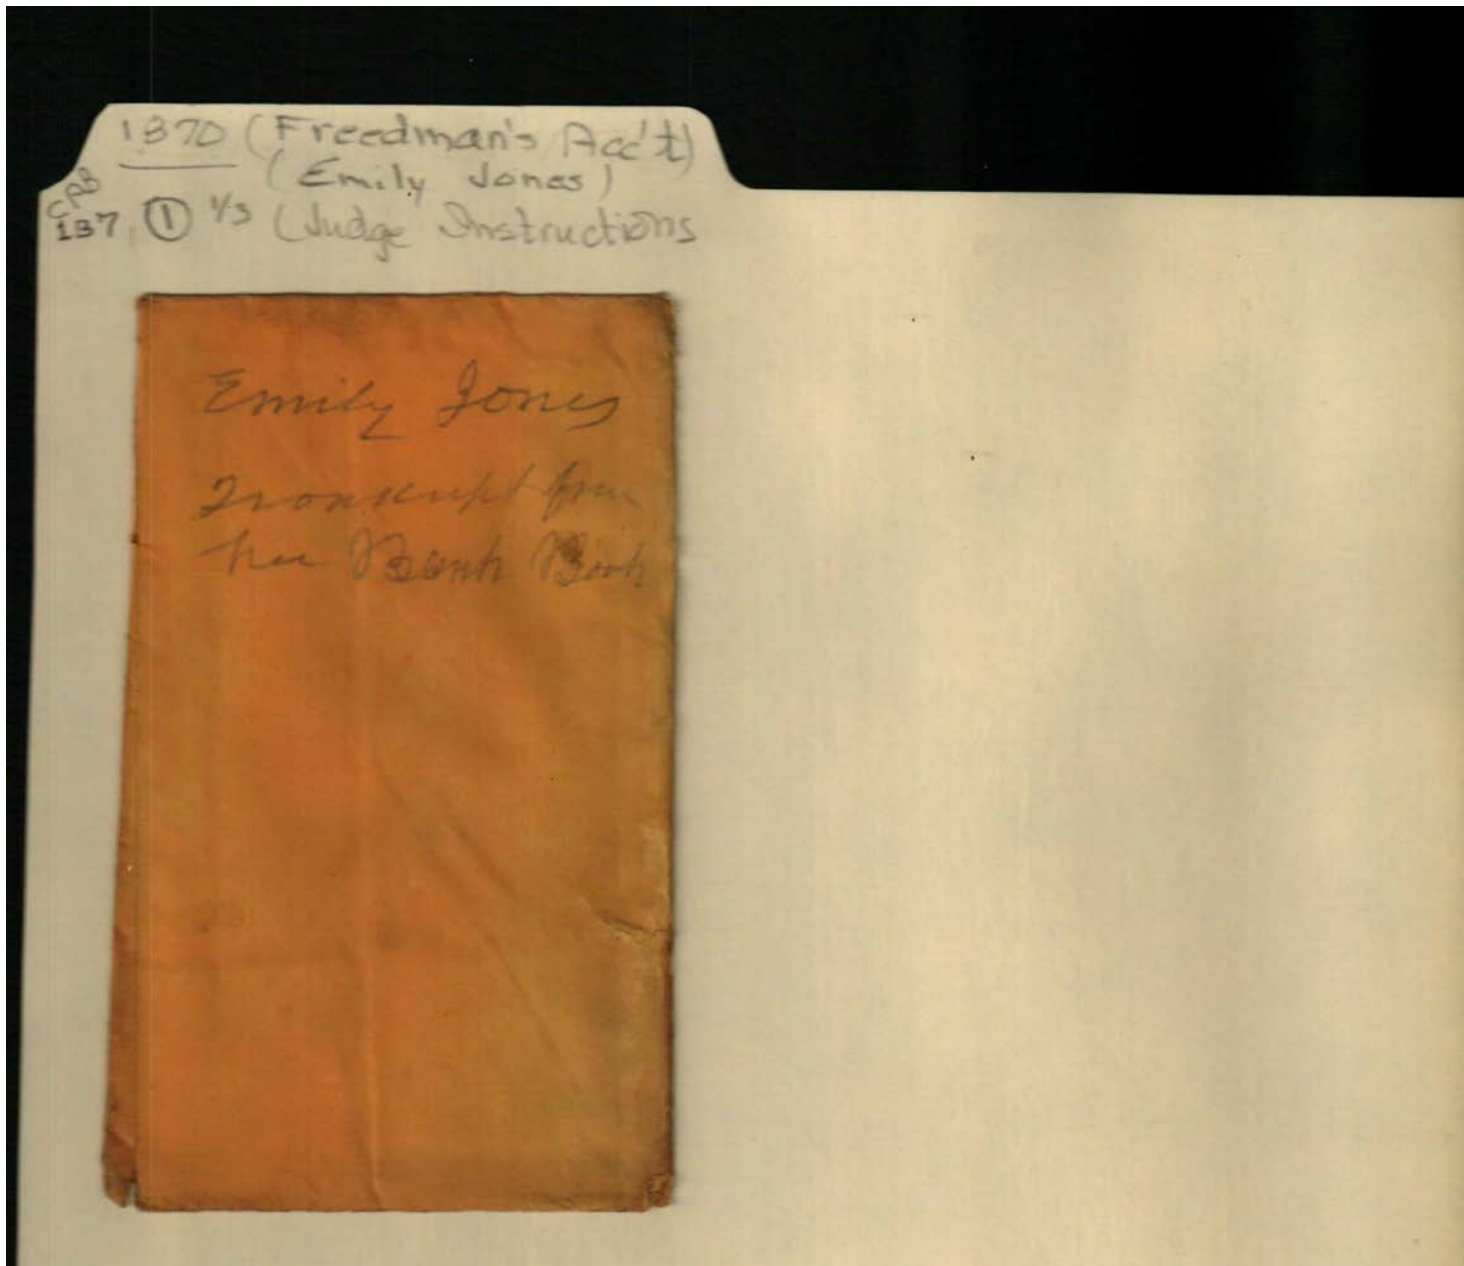 1870 (Freedman's Acc't)
(Emily Jones)
CPB
187 ① 1/3 (Judge Instructions
Emily Jones
Transcript from
her Bank Book